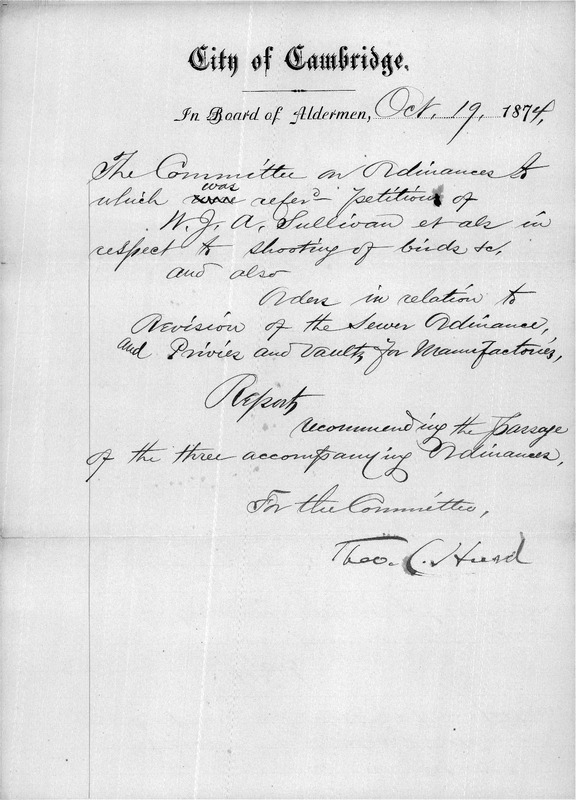 City of Cambridge.
In Board of Aldermen, Oct. 19, 1874,
The Committee on Ordinances to
was
which refer'd petition of
W. J. A. Sullivan et als in
respect to shooting of birds &c.
and also
Orders in relation to
Revision of the Sewer Ordinance,
and Privies and Vaults for Manufactories,
Report,
recommending the passage
of the three accompanying Ordinances,
For the Committee,
Theo. C. Hurd